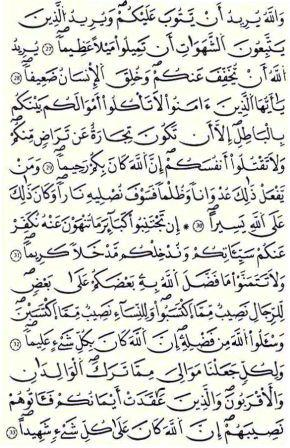 وَاللَّهُ يُرِيدُ أَن يَتُوبَ عَلَيْكُمْ وَيُرِيدُ الَّذِينَ
يَتَّبِعُونَ الشَّهَوَاتِ أَن تَمِيلُوا مَيْلًا عَظِيمًا ٢٧ يُرِيدُ
اللَّهُ أَن يُخَفِّفَ عَنكُمْ وَخُلِقَ الْإِنسَانُ ضَعِيفًا ٢٨
يَا أَيُّهَا الَّذِينَ ءَامَنُوا لَا تَأْكُلُوا أَمْوَالَكُم بَيْنَكُم
بِالْبَاطِلِ إِلَّا أَن تَكُونَ تِجَارَةً عَن تَرَاضٍ مِّنكُمْ
وَلَا تَقْتُلُوا أَنفُسَكُمْ إِنَّ اللَّهَ كَانَ بِكُمْ رَحِيمًا ٢٩ وَمَن
يَفْعَلْ ذَٰلِكَ عُدْوَانًا وَظُلْمًا فَسَوْفَ نُصْلِيهِ نَارًا وَكَانَ ذَٰلِكَ
عَلَى اللَّهِ يَسِيرًا ٣٠ * إِن تَجْتَنِبُوا كَبَائِرَ مَا تُنْهَوْنَ عَنْهُ نُكَفِّرْ
عَنكُمْ سَيِّئَاتِكُمْ وَنُدْخِلْكُم مُّدْخَلًا كَرِيمًا ٣١
وَلَا تَتَمَنَّوْا مَا فَضَّلَ اللَّهُ بِهِ بَعْضَكُمْ عَلَىٰ بَعْضٍ
لِّلرِّجَالِ نَصِيبٌ مِّمَّا اكْتَسَبُوا وَلِلنِّسَاءِ نَصِيبٌ مِّمَّا اكْتَسَبْنَ
وَسْـَٔلُوا اللَّهَ مِن فَضْلِهِ إِنَّ اللَّهَ كَانَ بِكُلِّ شَيْءٍ عَلِيمًا ٣٢
وَلِكُلٍّ جَعَلْنَا مَوَالِيَ مِمَّا تَرَكَ الْوَالِدَانِ
وَالْأَقْرَبُونَ وَالَّذِينَ عَقَدَتْ أَيْمَانُكُمْ فَـَٔاتُوهُمْ
نَصِيبَهُمْ إِنَّ اللَّهَ كَانَ عَلَىٰ كُلِّ شَيْءٍ شَهِيدًا ٣٣